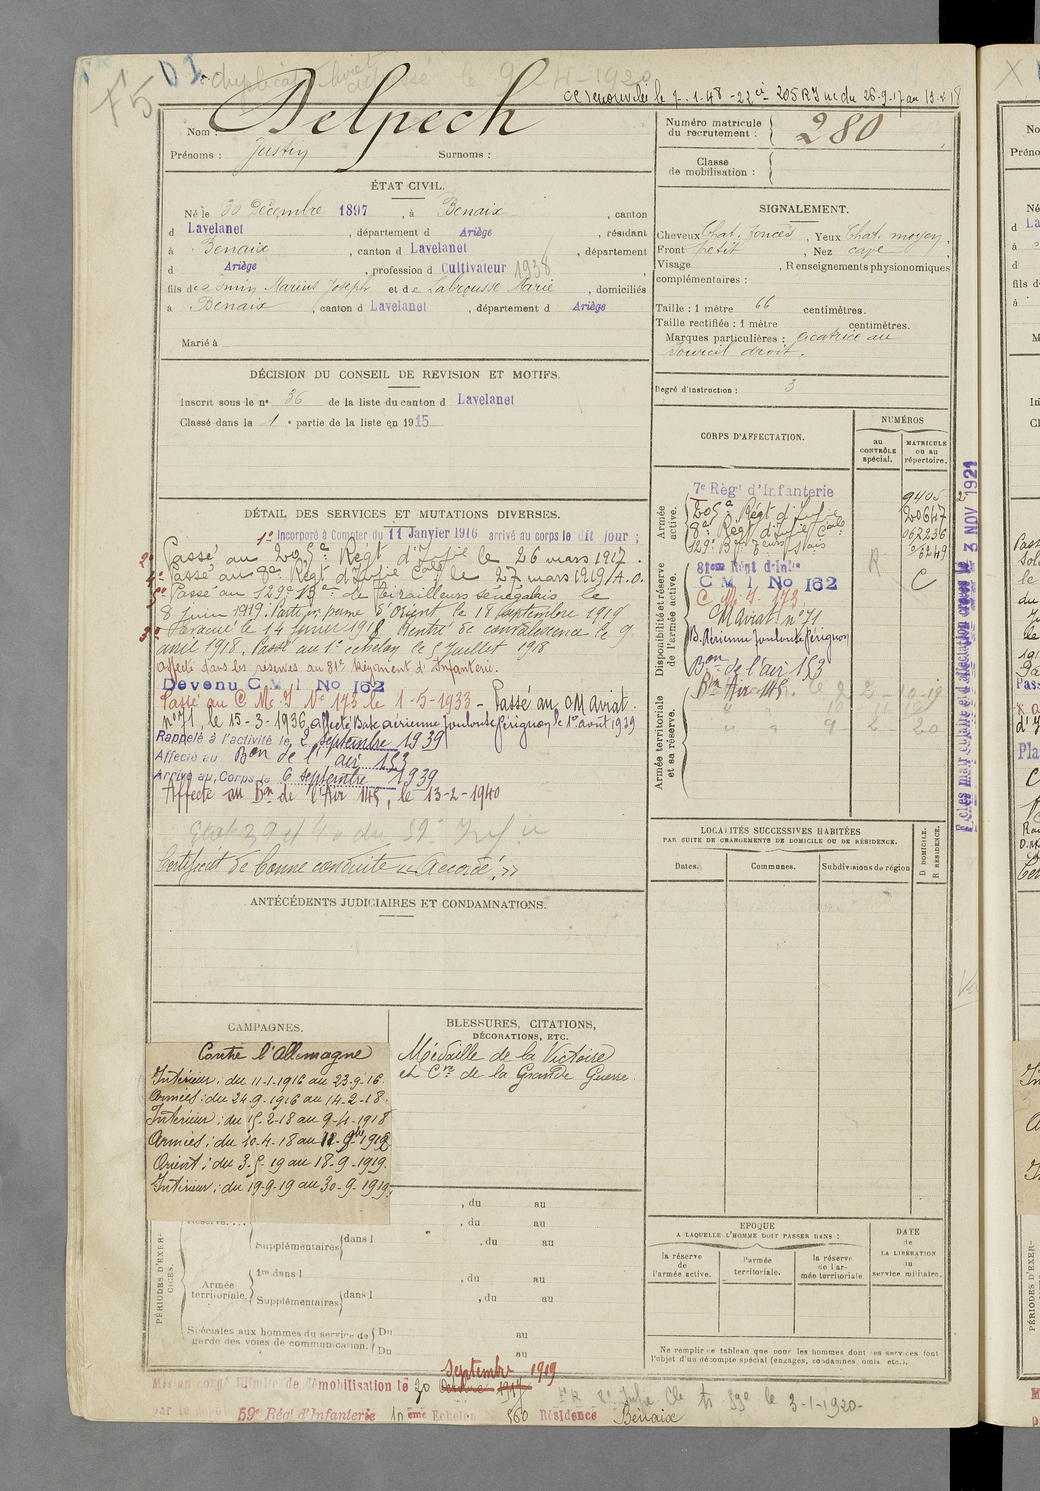 75 D2 duplicata livret délivré le 9-4-1920
CC renouvelée le 7-1-48 - 22 Cie 205 RI uc du 26-9-17 au 13-2-18
Nom : Delpech
Prénoms : Justin Surnoms :
Numéro matricule du recrutement : 280
Classe de mobilisation :
ÉTAT CIVIL.
Né le 30 Décembre 1897, à Benaix, canton
d Lavelanet, département d Ariège, résidant
à Benaix, canton d Lavelanet, département
d Ariège, profession d Cultivateur 1938
fils de Marius Joseph et de Labrousse Marie, domiciliés
à Benaix, canton d Lavelanet, département d Ariège
Marié à
SIGNALEMENT.
Cheveux Chat. foncés, Yeux Chat. moyen.
Front petit, Nez cave
Visage , Renseignements physionomiques
complémentaires :
Taille : 1 mètre 66 centimètres.
Taille rectifiée : 1 mètre centimètres.
Marques particulières : cicatrice au
sourcil droit.
Degré d'instruction : 3
DÉCISION DU CONSEIL DE REVISION ET MOTIFS.
Inscrit sous le n° 36 de la liste du canton d Lavelanet
Classé dans la 1e partie de la liste en 1915
CORPS D'AFFECTATION.
NUMÉROS
au CONTRÔLE spécial.
MATRICULE ou au répertoire.
Armée active.
7e Régt d'Infanterie 9405
205e Régt d'Infie 20647
8e Régt d'Infie Cole 062236
129e Bon Tirs Slais
Disponibilité et réserve de l'armée active.
81ème Régt d'Infie R C
C M I No 162
C M. I. 173
C M aviat. n° 71
B. Aérienne Toulouse Pérignon
Bon de l'air 153
Bon Air 145
Armée territoriale et sa réserve.
DÉTAIL DES SERVICES ET MUTATIONS DIVERSES.
1° Incorporé à Compter du 11 Janvier 1916 arrivé au corps le dit jour ;
2° Passé au 205e Régt d'Infie le 26 mars 1917.
4° Passé au 8e Régt d'Infie Cole le 27 mars 1919/A.O.
5° Passé au 129e Bon de Tirailleurs Sénégalais le
8 juin 1919. Parti pr armée d'Orient le 18 septembre 1919
3° Evacué le 14 février 1918 Rentré de convalescence le 9
avril 1918. Passé au 1er echelon le 5 juillet 1918
affecté dans les réserves au 81e Régiment d'Infanterie.
Devenu C M I No 162
Passé au C. M. I No 173 le 1-5-1933 - Passé au C M aviat.
n° 71, le 15-3-1936, affecté Base aérienne Toulouse Pérignon le 1er août 1939
Rappelé à l'activité le 2 septembre 1939
Affecté au Bon de l'air 153
Arrivé au Corps le 6 septembre 1939
Affecté au Bon de l'Air 145, le 13-2-1940
Certificat de bonne conduite « Accordé. »
Rôles matricule et d'affectation créés le 3 NOV 1921
LOCALITÉS SUCCESSIVES HABITÉES
PAR SUITE DE CHANGEMENTS DE DOMICILE OU DE RÉSIDENCE.
Dates. Communes. Subdivisions de région D DOMICILE. R RÉSIDENCE.
ANTÉCÉDENTS JUDICIAIRES ET CONDAMNATIONS.
CAMPAGNES.
Contre l'Allemagne
Intérieur : du 11-1-1916 au 23-9-16.
Armées : du 24-9-1916 au 14-2-18.
Intérieur : du 15-2-18 au 9-4-1918
Armées : du 10-4-18 au
Orient : du 3-5-19 au 18-9-1919.
Intérieur : du 19-9-19 au 30-9-1919.
BLESSURES, CITATIONS,
DÉCORATIONS, ETC.
Médaille de la Victoire
et Cve de la Grande Guerre.
PÉRIODES D'EXERCICES.
Réserve...
Supplémentaires dans l
, du au
, du au
, du au
Armée territoriale.
1re dans l , du au
Supplémentaires dans l , du au
Spéciales aux hommes du service de garde des voies de communication.
Du au
Du au
EPOQUE
A LAQUELLE L'HOMME DOIT PASSER DANS :
la réserve de l'armée active.
l'armée territoriale.
la réserve de l'armée territoriale.
DATE de LA LIBÉRATION du service militaire.
Ne remplir ce tableau que pour les hommes dont les services font
l'objet d'un décompte spécial (engagés, condamnés, omis, etc.).
septembre 1919
Mis en congé illimité de démobilisation le 30 Octobre 1917
par le dépôt 59e Régt d'Infanterie 10 ème Echelon 860 Résidence Benaix
le 3-1-1920-